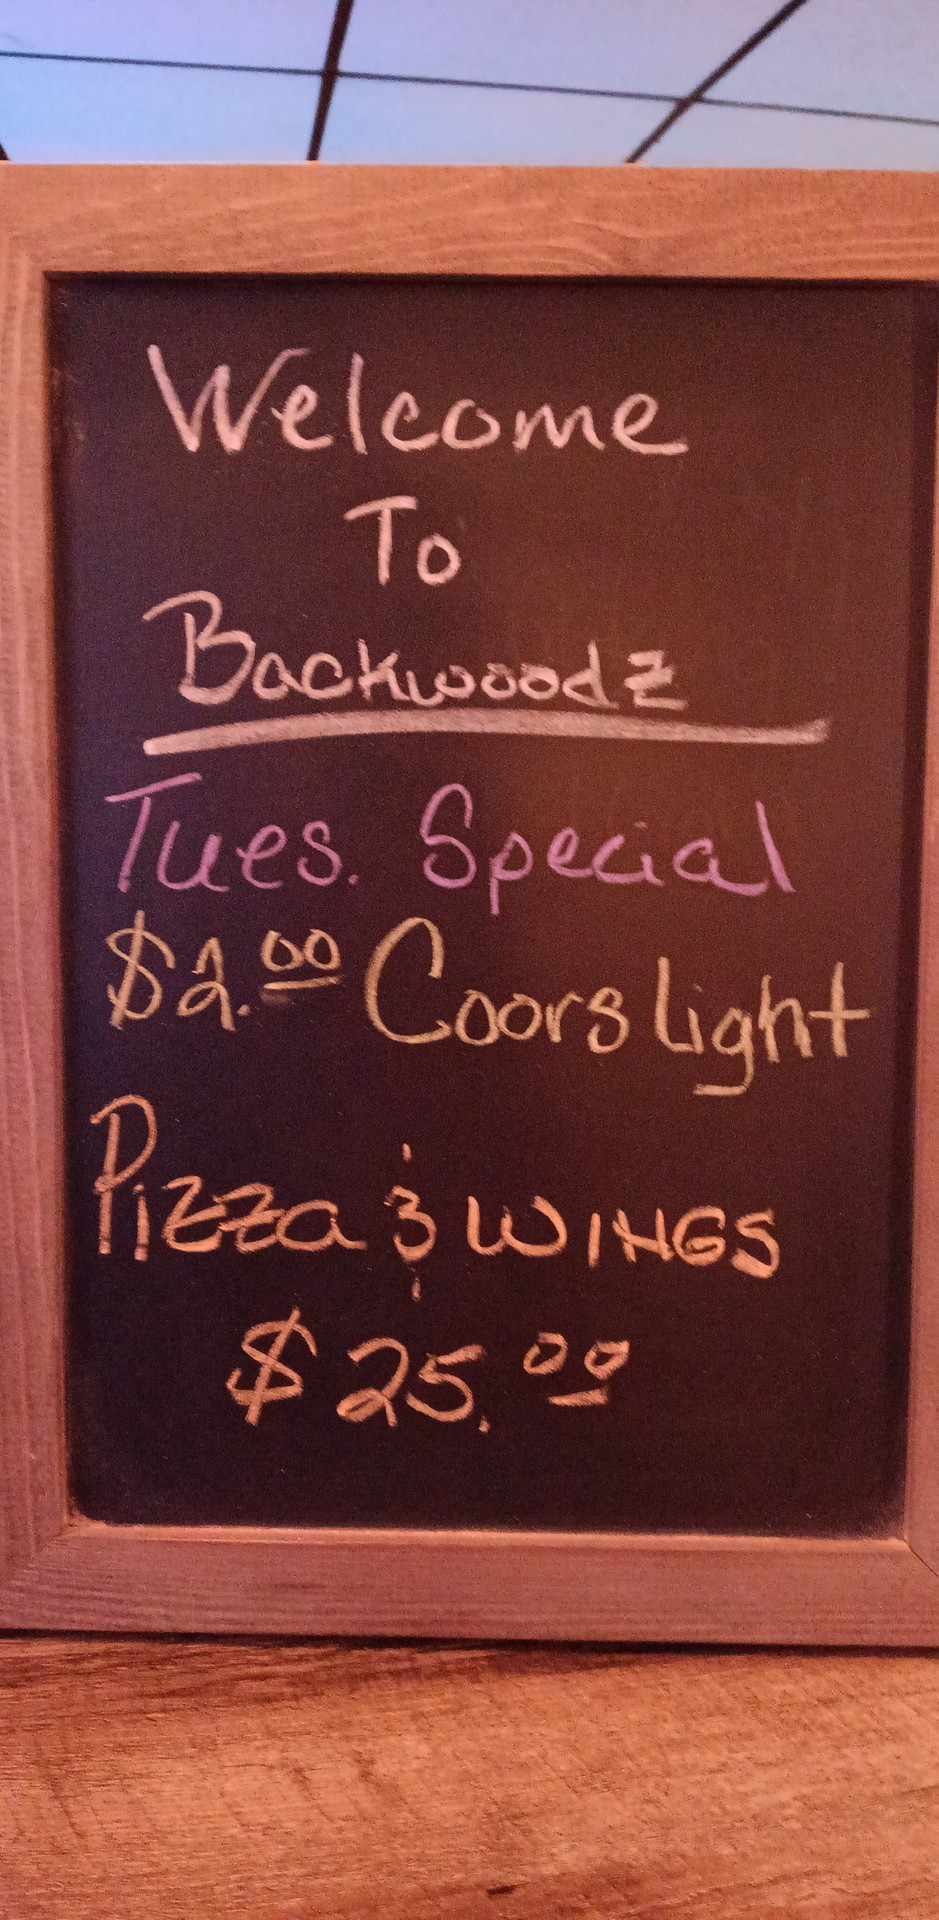 Welcome
To
Backwoodz
Tues. Special
$2.00 Coors Light
Pizza & WINGS
$25.00